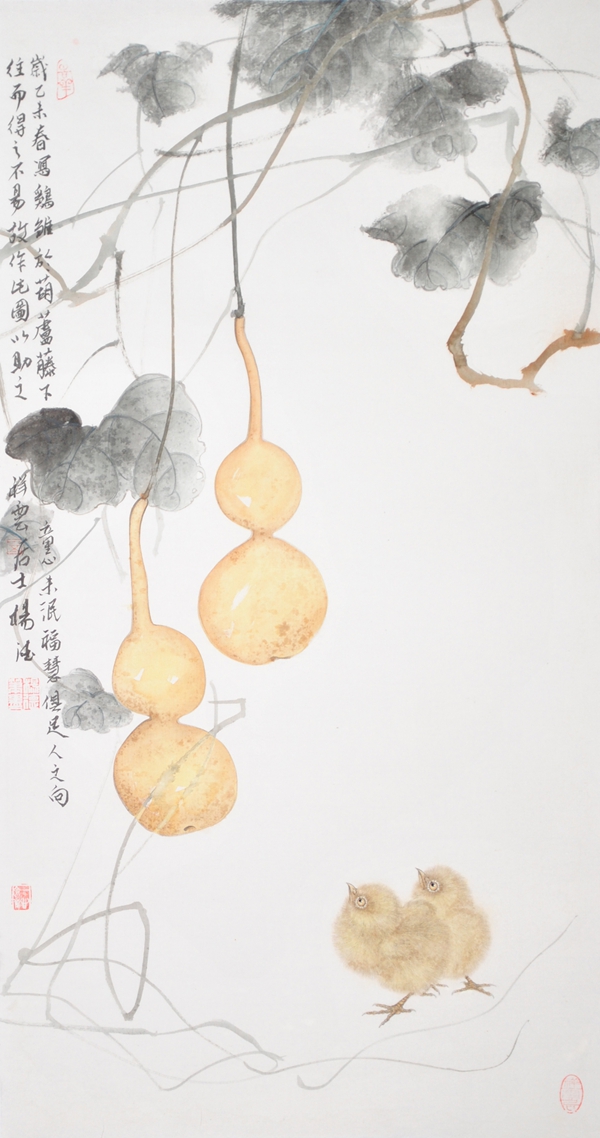 歲乙未春寫鷄雛於葫蘆藤下 童心未泯福慧俱足人之向
往而得之不易故作此圖以助之 祥雲居士楊